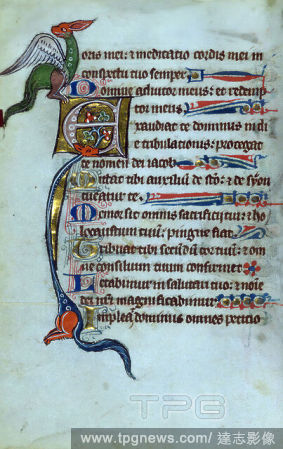 oris mei: & meditatio cordis mei in
conspectu tuo semper.
Domine adiutor meus: & redemp
tor meus.
Exaudiat te dominus in di
e tribulationis: protegat
te nomen dei iacob.
Mittat tibi auxiliū de sc̄o: & de syon
tueatur te.
Memor sit omnis sacrificii tui: & ho
locaustum tuū: pingue fiat.
Tribuat tibi secūdū cor tuū: & om
ne consilium tuum confirmet
Letabimur in salutari tuo: & ī noīe
dei nr̄i magnificabimur.
Impleat dominus omnes petitio
TPG
www.tpgnews.com/ 達志影像